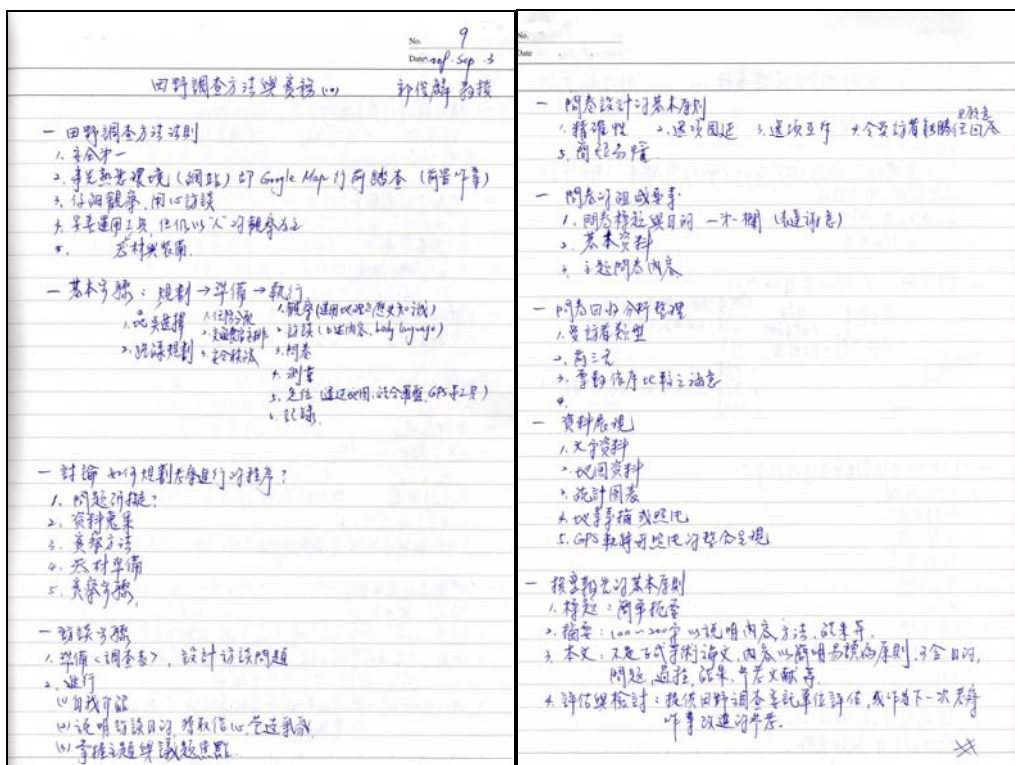 No. 9
Date Sep. 3
田野調查方法與實務(一) 郭俊麟 教授
一 田野調查方法法則
1. 安全第一
2. 事先熟悉環境(網站)即 Google Map 行前踏查(前置作業)
3. 仔細觀察、用心訪談
4. 妥善運用工具,但仍以"人"的觀察為主
5. 器材與裝備
一 基本步驟:規劃→準備→執行
1. 地點選擇
2. 路線規劃
1. 任務分配
2. 交通食宿安排
3. 安全
1. 觀察(運用地理與歷史知識)
2. 訪談(口述內容、body language)
3. 問卷
4. 測量
5. 定位(通過地圖,結合羅盤,GPS等工具)
6. 記錄
一 討論 如何規劃考察進行的程序?
1. 問題研擬?
2. 資料蒐集
3. 考察方法
4. 器材準備
5. 考察步驟
一 訪談步驟
1. 準備<調查表>,設計訪談問題
2. 進行
(1) 自我介紹
(2) 說明訪談目的 獲取信心,營造氣氛
(3) 掌握主題與議題焦點
No.
Date
一 問卷設計的基本原則
1. 精確性 2. 選項周延 3. 選項互斥 4. 令受訪者能勝任回答
5. 簡短易懂
一 問卷的組成要素
1. 問卷標題與目的 一第一欄(表達謝意)
2. 基本資料
3. 主題問卷內容
一 問卷回收分析整理
1. 受訪者類型
2. 前三名
3. 考勘依序比較之
4.
一 資料展現
1. 文字資料
2. 地圖資料
3. 統計圖表
4. 地景素描或照片
5. GPS軌跡與照片的整合呈現
一 撰寫報告的基本原則
1. 標題:簡單扼要
2. 摘要:100~200字以說明內容、方法、結果等.
3. 本文:不是正式學術論文,內容以簡明易懂為原則,可含目的,
問題,過程,結果,參考文獻等.
4. 評估與檢討:提供田野調查委託單位評估,或作為下一次考察
作業改進的參考.